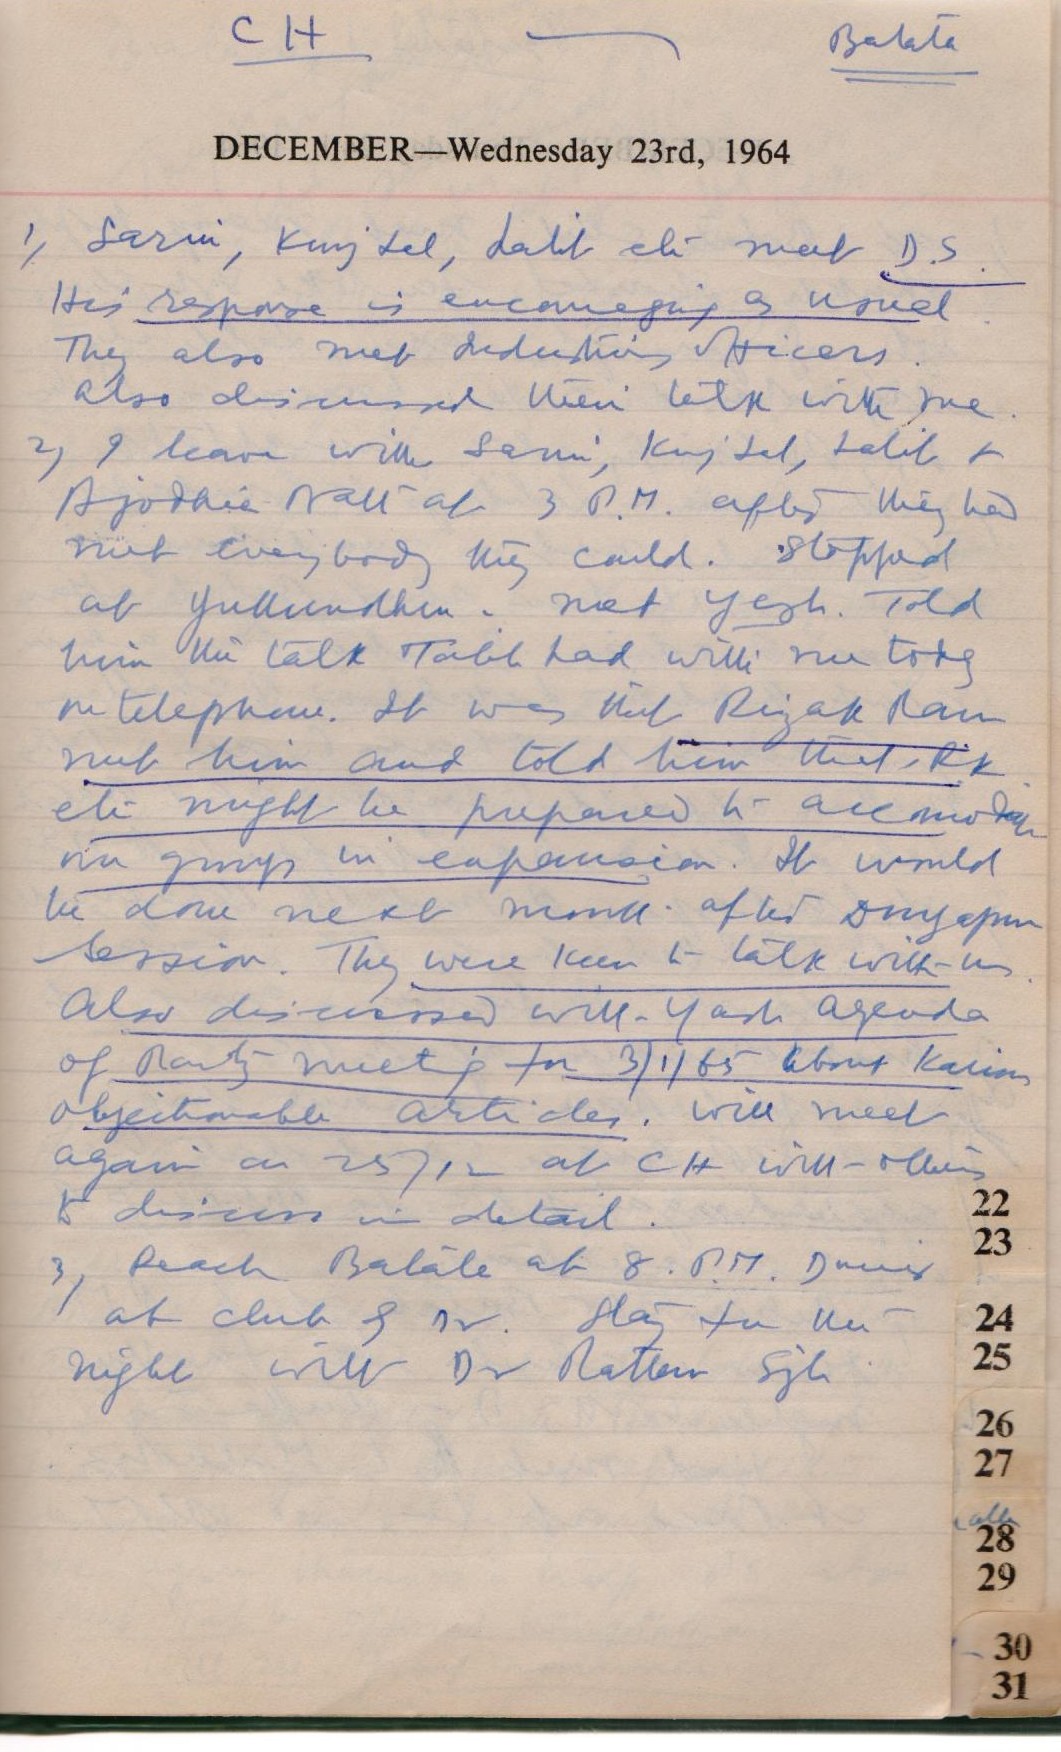 CH — Batala
DECEMBER—Wednesday 23rd, 1964
1, Sarin, Kunj Lal, Lalit etc meet D.S.
His response is encouraging as usual.
They also met Industries Officers.
Also discussed their talk with me.
2, I leave with Sarin, Kunj Lal, Lalit +
Ajodhia Nath at 3 P.M. after they had
met everybody they could. Stopped
at Jullundhur. met Yash. Told
him the talk had with me today
on telephone. It was that Rizak Ram
met him and told him that RK
etc might be prepared to accomodate
our group in expansion. It would
be done next month after Durgapur
Session. They were keen to talk with us.
Also discussed with Yash agenda
of Party meeting for 3/1/65 about
objectionable articles. will meet
again on 25/12 at CH with others
to discuss in detail.
3, Reach Batala at 8. P.M. Dinner
at club & Dr. Stay for the
night with Dr Rattan Sgh
22
23
24
25
26
27
28
29
30
31